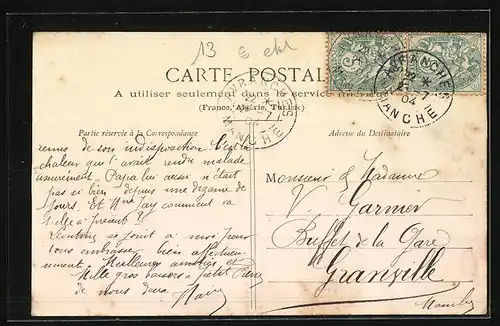 13
CARTE POSTALE
A utiliser seulement dans le service intérieur
(France, Algérie, Tunisie)
Partie réservée à la Correspondance
Adresse du Destinataire
AVRANCHES
22
04
MANCHE
AVRANCHES
MANCHE
remis de son indisposition c'est la
chaleur qui l'avait rendu malade
surement. Papa lui aussi n'était
pas si bien depuis une dizaine de
jours. Et Mme Jay comment va
t-elle à présent ?
se joint à moi pour
vous embrasser bien affectueu-
sement. Meilleures amitiés et
Mille gros baisers à petit Pierre
de nous deux
Monsieur & Madame
V. Garnier
Buffet de la Gare
Granville
Manche